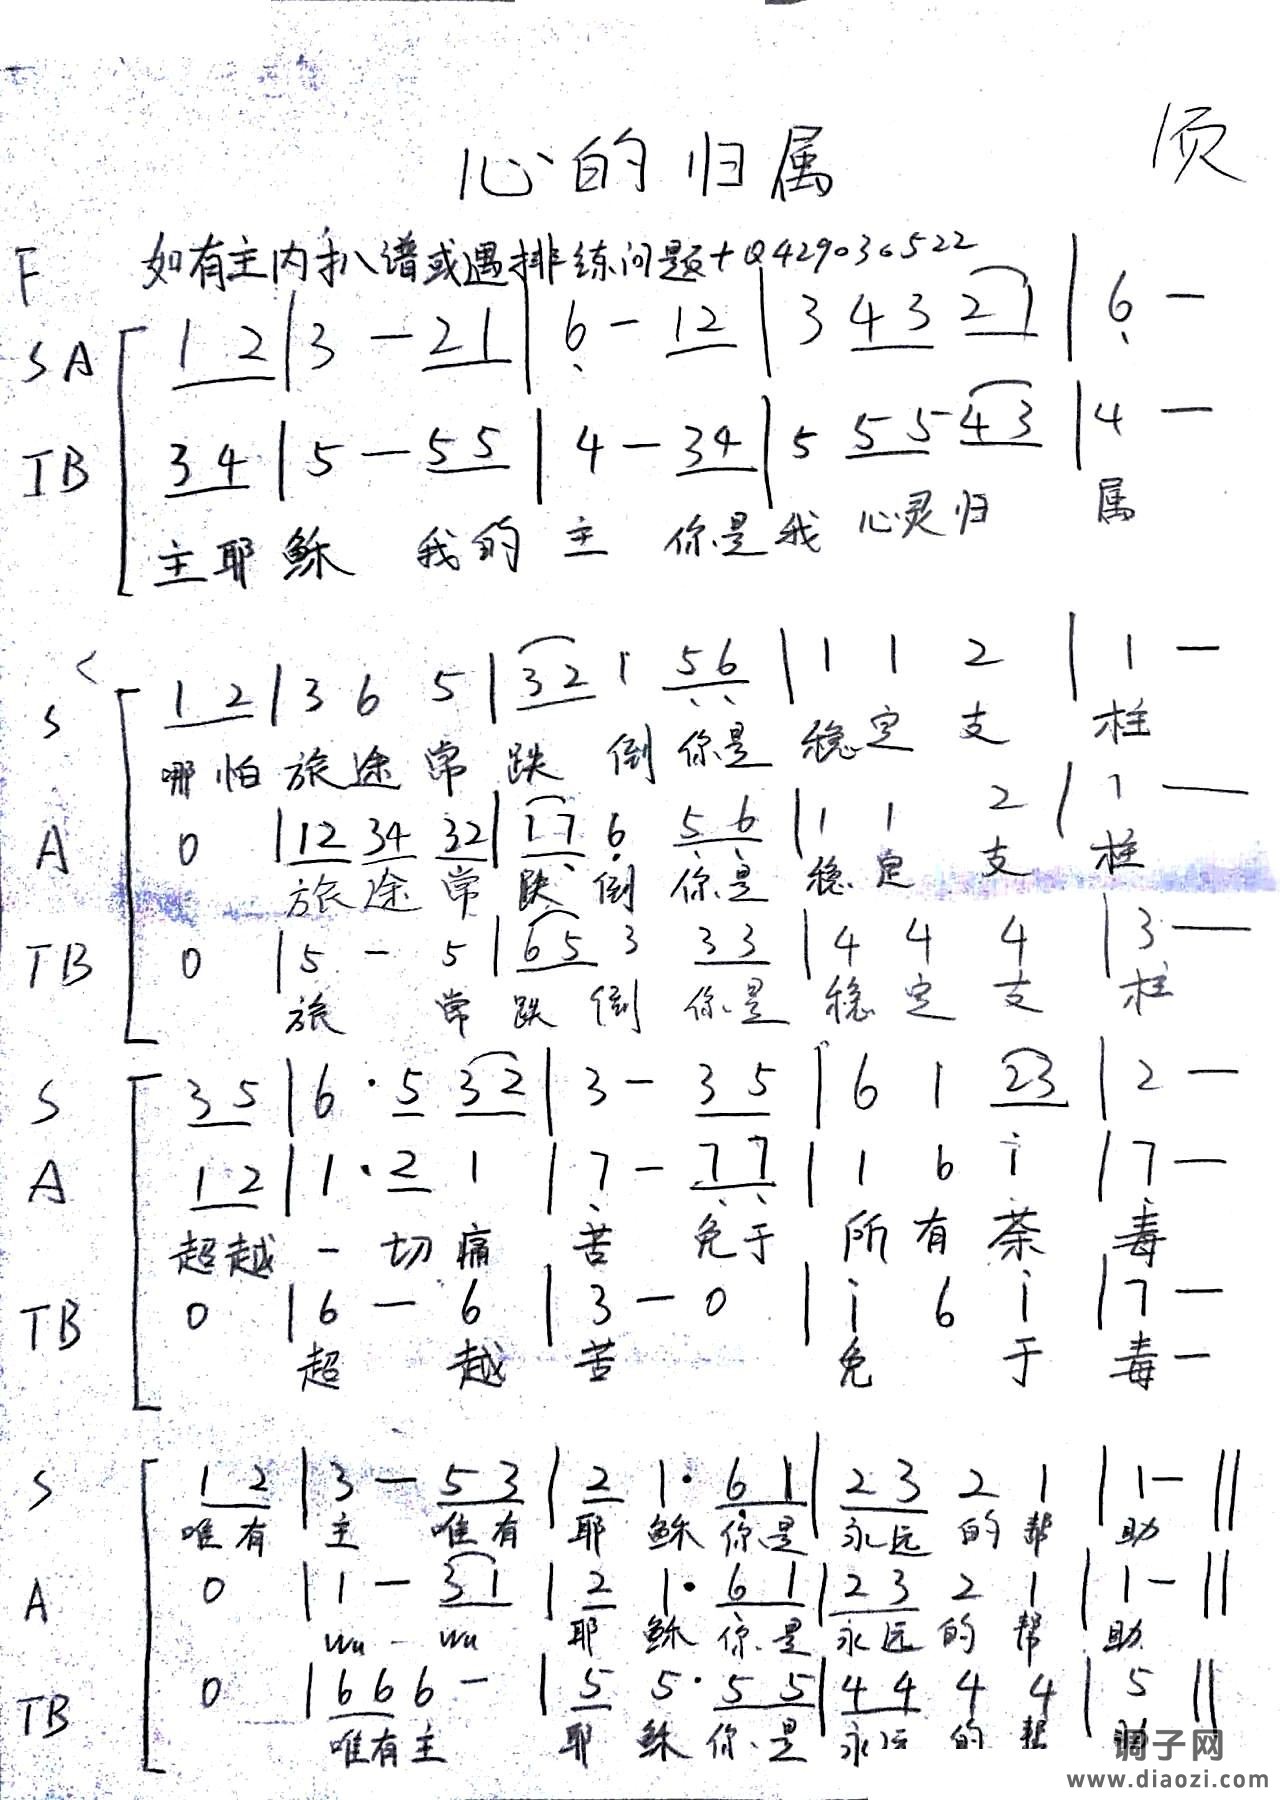 心的归属
1页
F 如有主内扒谱或遇排练问题+Q429036522
SA 1 2 | 3 — 2 1 | 6 — 1 2 | 3 4 3 2 1 | 6 —
TB 3 4 | 5 — 5 5 | 4 — 3 4 | 5 5 5 4 3 | 4 —
主耶稣 我的主 你是我心灵归属
S 1 2 | 3 6 5 | 3 2 1 5 6 | 1 1 2 | 1 —
哪怕旅途常跌倒你是稳定支柱
A 0 | 1 2 3 4 3 2 | 1 7 6 5 6 | 1 1 2 | 1 —
旅途常跌倒你是稳定支柱
TB 0 | 5 — 5 | 6 5 3 3 3 | 4 4 4 | 3 —
旅 常跌倒你是稳定支柱
S 3 5 | 6 · 5 3 2 | 3 — 3 5 | 6 1 2 3 | 2 —
A 1 2 | 1 · 2 1 | 7 — 7 7 | 1 6 i | 7 —
超越一切痛苦 免于所有荼毒
TB 0 | 6 — 6 | 3 — 0 | i 6 i | 7 —
超 越 苦 免 于 毒 —
S 1 2 | 3 — 5 3 | 2 1 · 6 1 | 2 3 2 1 | 1 — ||
唯有主 唯有耶稣你是永远的帮助
A 0 | 1 — 3 1 | 2 1 · 6 1 | 2 3 2 1 | 1 — ||
wu - wu 耶稣你是永远的帮助
TB 0 | 6 6 6 — | 5 5 · 5 5 | 4 4 4 4 | 5 ||
唯有主 耶稣你是永远的帮助
调子网
www.diaozi.com